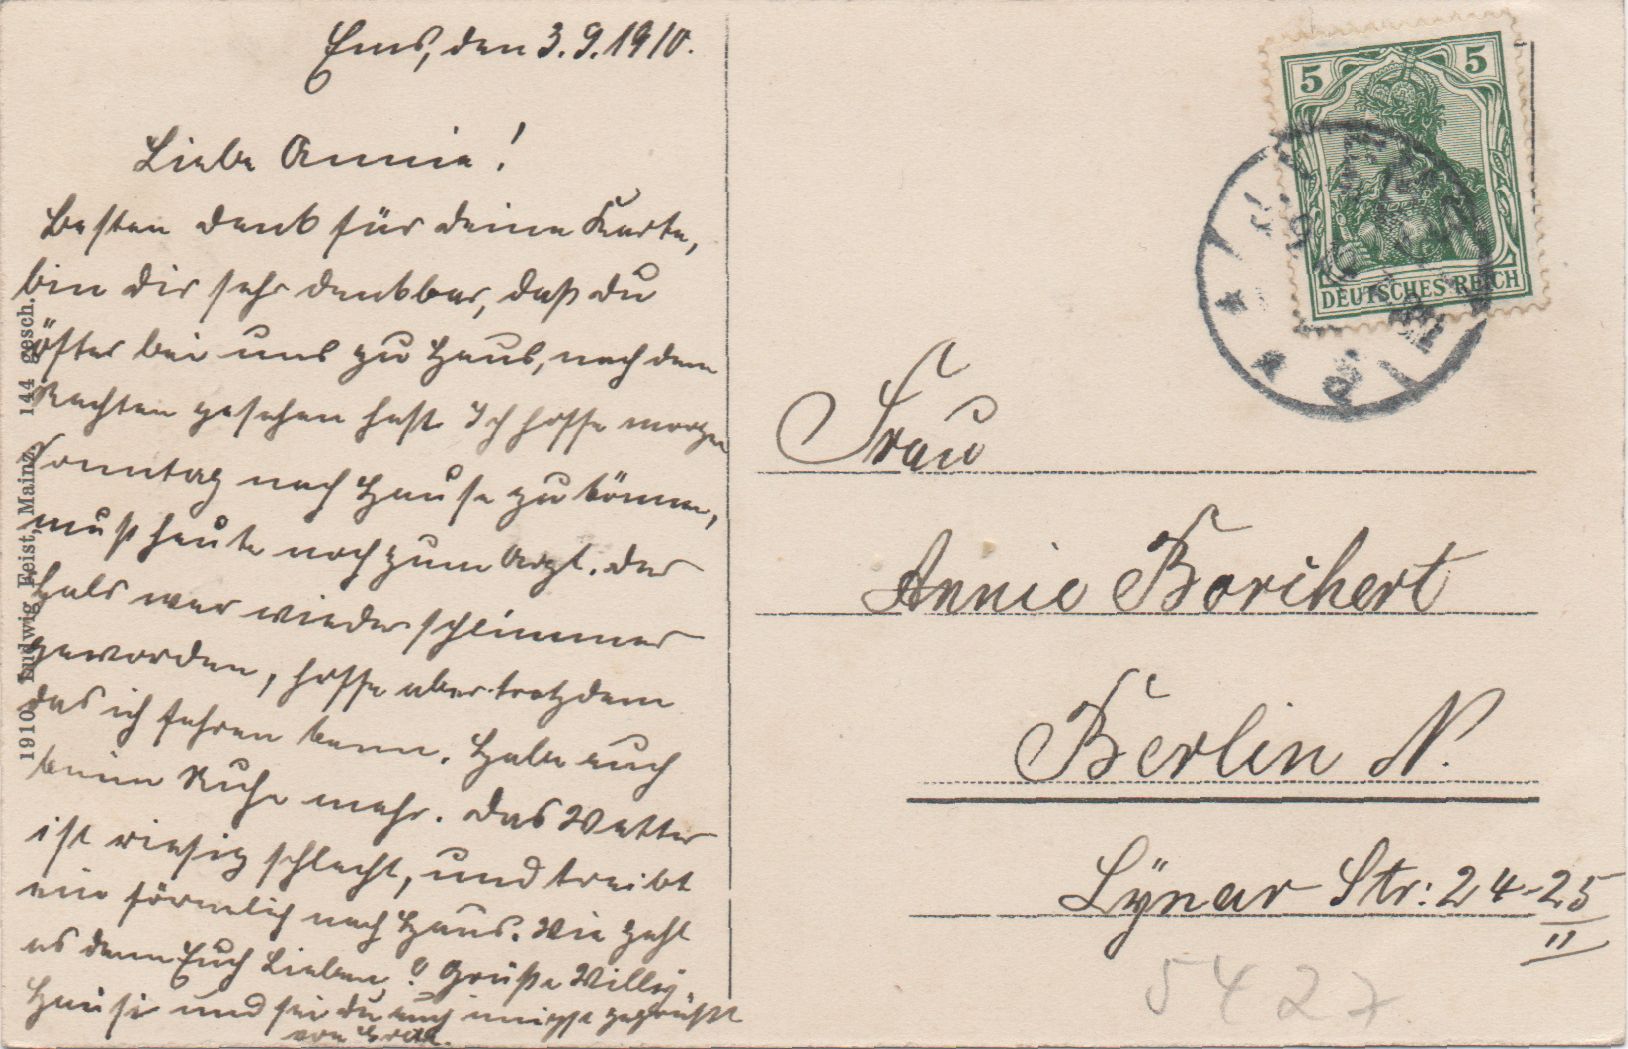 Ems, den 3.9.1910.
Liebe Annie!
Besten Dank für deine Karte,
bin dir sehr dankbar, daß du
öfter bei uns zu Haus, nach dem
Rechten gesehen hast. Ich hoffe morgen
Sonntag nach Hause zu können,
muß heute noch zum Arzt. Der
Hals war wieder schlimmer
geworden, hoffe aber trotzdem
das ich fahren kann. Habe auch
keine Ruhe mehr. Das Wetter
ist riesig schlecht, und treibt
ein förmlich nach Haus. Wie geht
es denn Euch Lieben? Grüße Willy,
und sei du auch innigst gegrüßt
von
1910 Ludwig Feist, Mainz. 144 gesch.
5 5
DEUTSCHES REICH
Frau
Annie Borchert
Berlin N.
Lynar Str: 24-25
II
5427